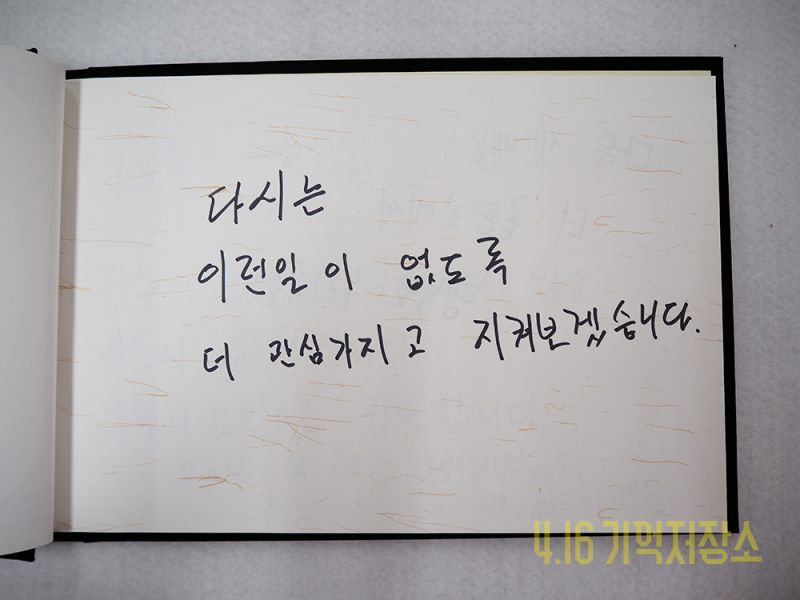 다시는
이런일이 없도록
더 관심가지고 지켜보겠습니다.
4.16 기억저장소